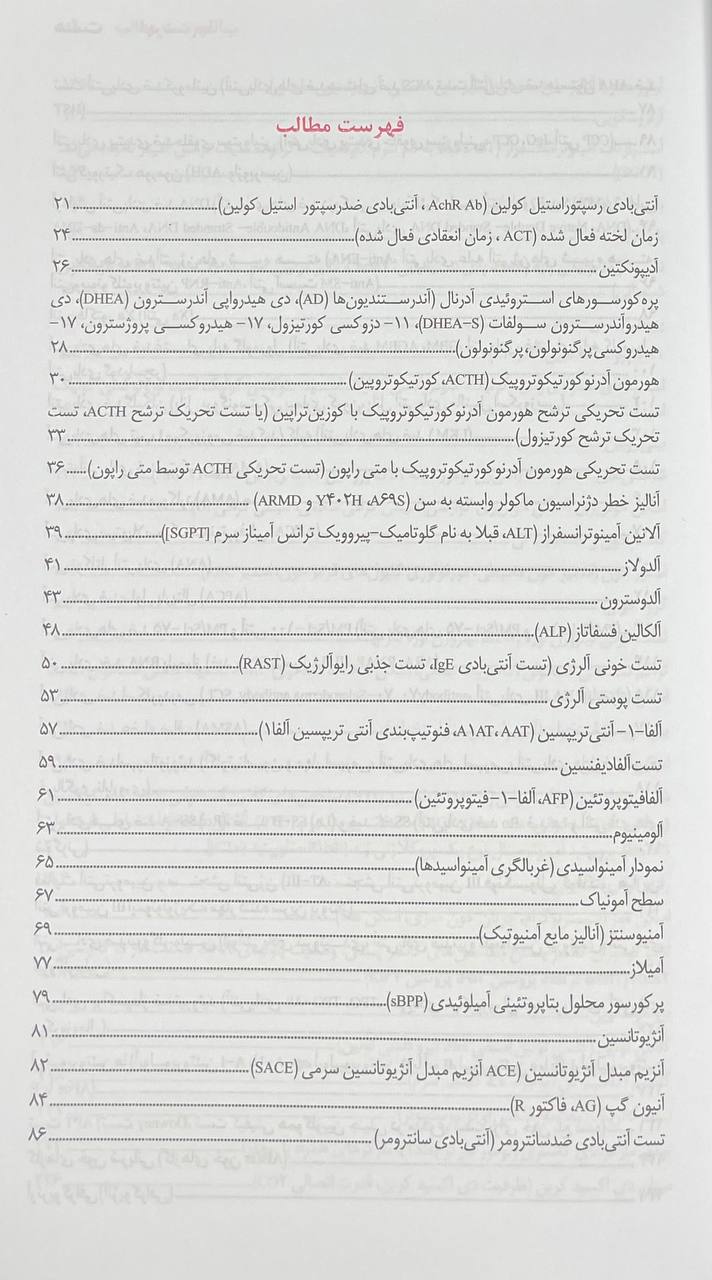 فهرست مطالب
آنتی‌بادی رسپتوراستیل کولین (AchR Ab ، آنتی‌بادی ضدرسپتور استیل کولین)........۲۱
زمان لخته فعال شده (ACT ، زمان انعقادی فعال شده)........۲۴
آدیپونکتین........۲۶
پره‌کورسورهای استروئیدی آدرنال (آندرستندیون‌ها (AD)، دی هیدرواپی آندرسترون (DHEA)، دی
هیدروآندرسترون سولفات (DHEA-S)، ۱۱- دزوکسی کورتیزول، ۱۷- هیدروکسی پروژسترون، ۱۷-
هیدروکسی پرگنونولون، پرگنونولون)........۲۸
هورمون آدرنوکورتیکوتروپیک (ACTH، کورتیکوتروپین)........۳۰
تست تحریکی ترشح هورمون آدرنوکورتیکوتروپیک با کوزین‌تراپین (یا تست تحریک ترشح ACTH، تست
تحریک ترشح کورتیزول)........۳۳
تست تحریکی هورمون آدرنوکورتیکوتروپیک با متی راپون (تست تحریکی ACTH توسط متی راپون)......۳۶
آنالیز خطر دژنراسیون ماکولر وابسته به سن (Y۴۰۲H ،A۶۹S و ARMD)........۳۸
آلانین آمینوترانسفراز (ALT، قبلا به نام گلوتامیک-پیروویک ترانس آمیناز سرم [SGPT])........۳۹
آلدولاز........۴۱
آلدوسترون........۴۳
آلکالین فسفاتاز (ALP)........۴۸
تست خونی آلرژی (تست آنتی‌بادی IgE، تست جذبی رایوآلرژیک (RAST)........۵۰
تست پوستی آلرژی........۵۳
آلفا-۱- آنتی‌تریپسین (A۱AT، AAT، فنوتیپ‌بندی آنتی تریپسین آلفا۱)........۵۷
تست آلفادیفنسین........۵۹
آلفافیتوپروتئین (AFP، آلفا-۱-فیتوپروتئین)........۶۱
آلومینیوم........۶۳
نمودار آمینواسیدی (غربالگری آمینواسیدها)........۶۵
سطح آمونیاک........۶۷
آمنیوسنتز (آنالیز مایع آمنیوتیک)........۶۹
آمیلاز........۷۷
پرکورسور محلول بتاپروتئینی آمیلوئیدی (sBPP)........۷۹
آنژیوتانسین........۸۱
آنزیم مبدل آنژیوتانسین (ACE آنزیم مبدل آنژیوتانسین سرمی (SACE)........۸۲
آنیون گپ (AG، فاکتور R)........۸۴
تست آنتی‌بادی ضدسانترومر (آنتی‌بادی سانترومر)........۸۶